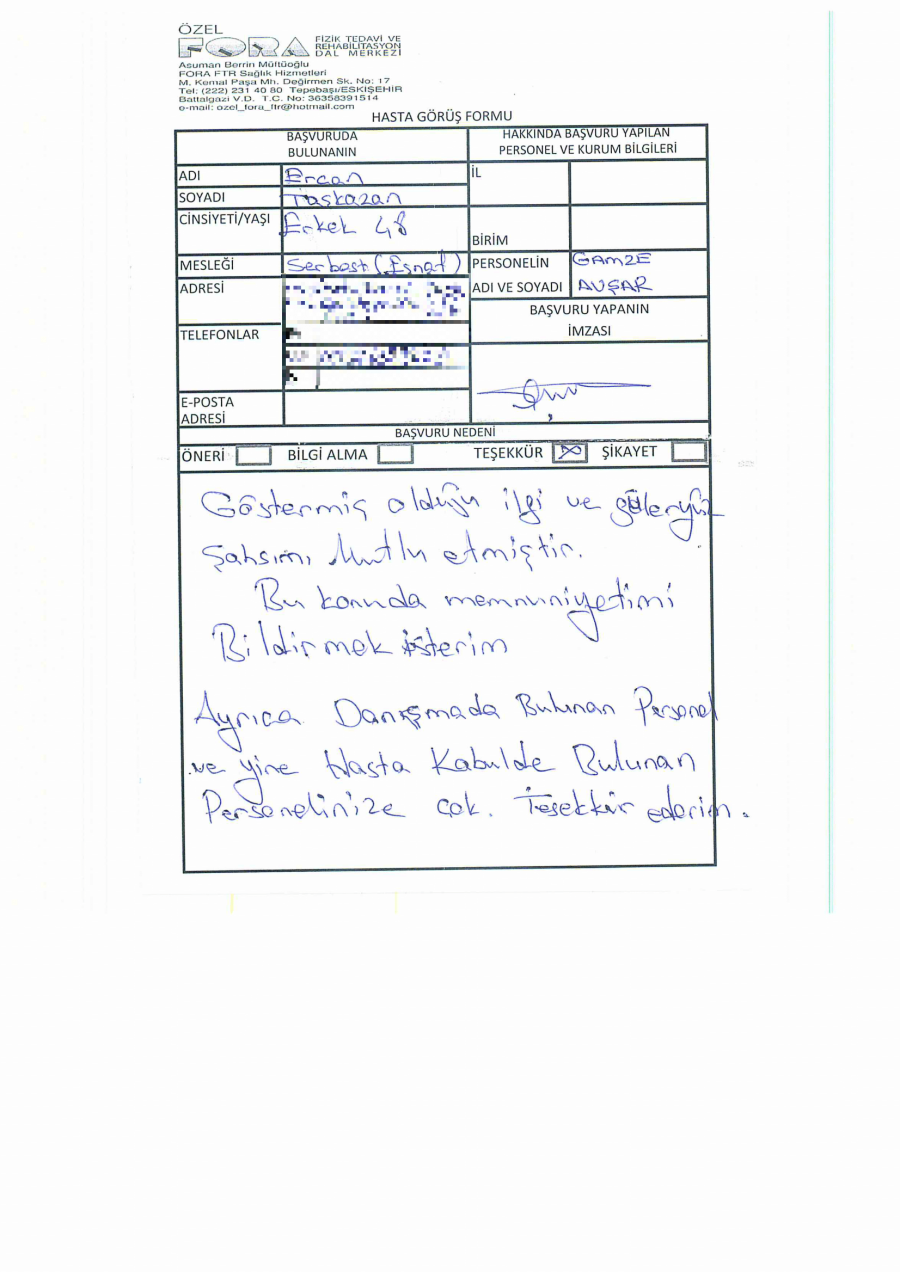 ÖZEL
FORA FİZİK TEDAVİ VE
REHABİLİTASYON
DAL MERKEZİ
Asuman Berrin Mültüoğlu
FORA FTR Sağlık Hizmetleri
M. Kemal Paşa Mh. Değirmen Sk. No: 17
Tel: (222) 231 40 80 Tepebaşı/ESKİŞEHİR
Battalgazi V.D. T.C. No: 36358391514
e-mail: ozel_fora_ftr@hotmail.com
HASTA GÖRÜŞ FORMU
BAŞVURUDA
BULUNANIN
HAKKINDA BAŞVURU YAPILAN
PERSONEL VE KURUM BİLGİLERİ
ADI Ercan
İL
SOYADI Taskazan
CİNSİYETİ/YAŞI Erkek 48
BİRİM
MESLEĞİ Serbest (Esnaf)
PERSONELİN GAMZE
ADI VE SOYADI AVŞAR
ADRESİ
BAŞVURU YAPANIN
İMZASI
TELEFONLAR
E-POSTA
ADRESİ
BAŞVURU NEDENİ
ÖNERİ BİLGİ ALMA TEŞEKKÜR ŞİKAYET
Göstermiş olduğu ilgi ve güleryüz
Şahsımı Mutlu etmiştir.
Bu konuda memnuniyetimi
Bildirmek isterim
Ayrıca Danışmada Bulunan Personel
ve yine Hasta Kabulde Bulunan
Personelinize çok. Teşekkür ederim.